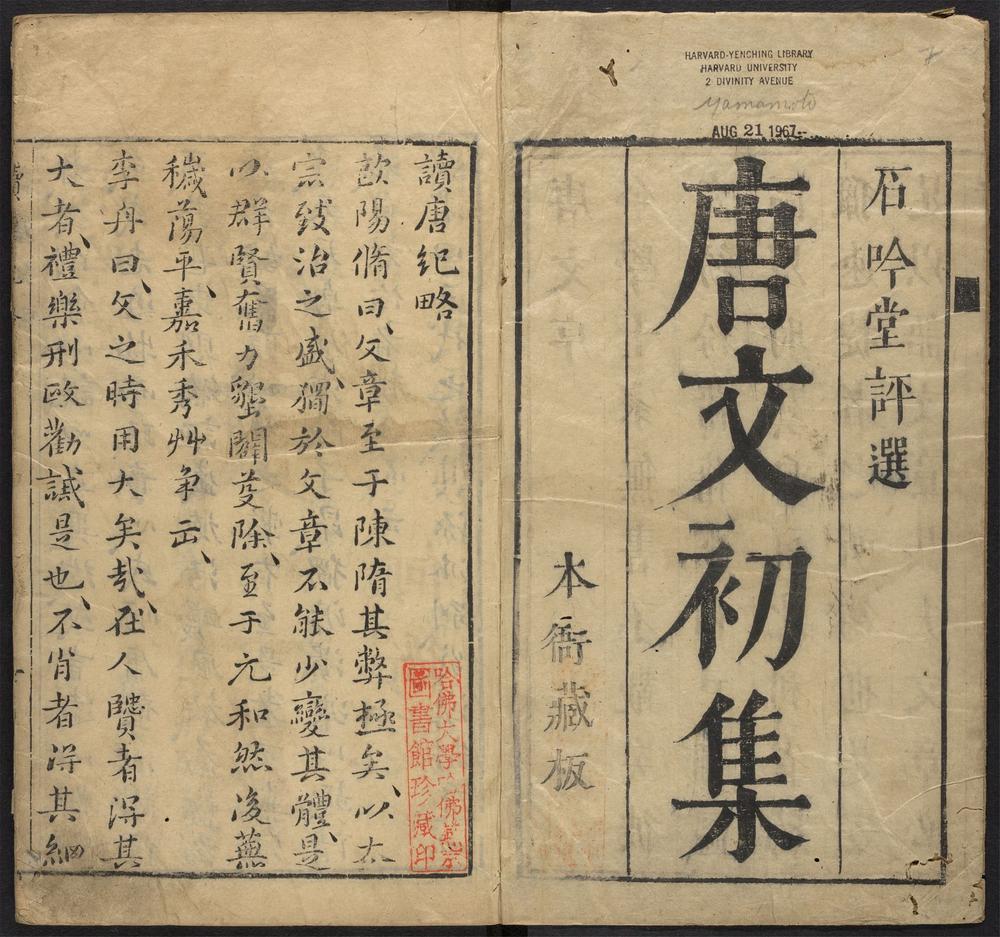 HARVARD-YENCHING LIBRARY
HARVARD UNIVERSITY
2 DIVINITY AVENUE
Yamamoto
AUG 21 1967
石吟堂評選
唐文初集
本衙藏板
讀唐紀略
歐陽脩曰、文章至于陳隋其弊極矣、以太
宗致治之盛、獨於文章不能少變其體、是
以群賢奮力墾闢芟除、至于元和然後蕪
穢蕩平、嘉禾秀艸争出、
李舟曰、文之時用大矣哉、在人賢者得其
大者、禮樂刑政勸誡是也、不肖者得其細
哈佛大學
佛燕京
圖書館珍藏印